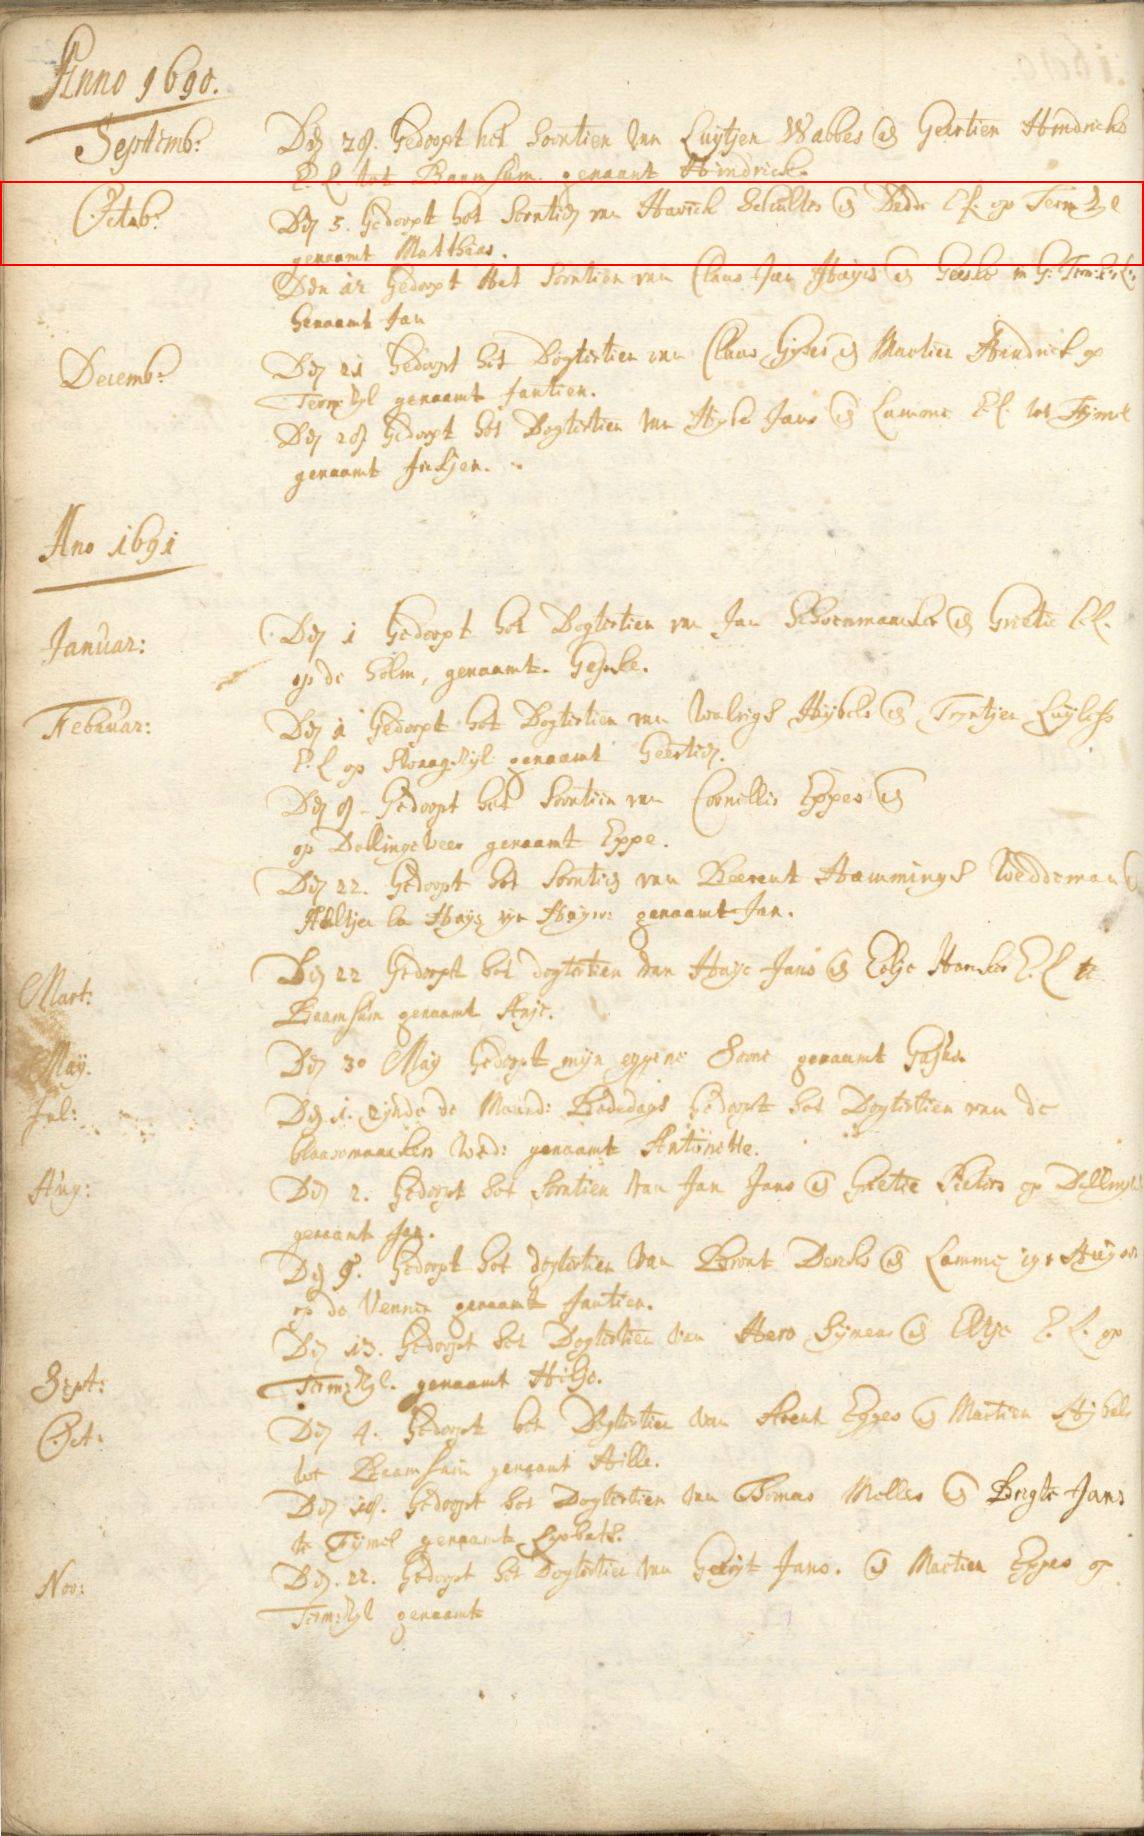 Anno 1690.
Septemb: Den 28. Gedoopt het Soontien van Luijtjen Wabbes en Geertien Hindricks
E. L. tot Baamsum. genaamt Hindrick.
Octob: Den 5. Gedoopt het Soontien van Harrick Schultes en Dedde E. L. op Term Zyl
genaamt Matthias.
Den 12 Gedoopt Het Soontien van Claas Jan Haijes en Geeske
Genaamt Jan
Decemb: Den 21 Gedoopt het Dogtertien van Claas Gijses en Martien Hindrick op
Term: Zyl genaamt Jantien.
Den 28 Gedoopt het Dogtertien van Hijbe Jans en Lamme E. L. tot Fijmel
genaamt
Ano 1691
Januar: Den 1 Gedoopt het Dogtertien van Jan Schoenmaacker en Grietie E. L.
op de holm, genaamt. Geeske.
Februar: Den 1 Gedoopt het Dogtertien van Walrigs Hijbels en Trijntjen Luijlefs
E. L op genaamt Geertien.
Den 8 Gedoopt het Soontien van Cornellis Eppes en
op Dallingeweer genaamt Eppe.
Den 22. Gedoopt het Soontien van Beerent Hemmings Weddeman en
Aeltjen genaamt Jan.
Mart: Den 22 Gedoopt het dogtertien van Haije Jans en Eelje Harckes E. L te
Baamsum genaamt Anje.
May. Den 30 May Gedoopt mijn eygene Soone genaamt
Jul: Den 1. zijnde de Maand: Bededags Gedoopt het Dogtertien van de
genaamt Antonette.
Aug: Den 2. Gedoopt het Soontien van Jan Jans en Grietie Pieters op
genaamt Jan.
Den 9. Gedoopt het dogtertien van Berent Dercks en Lamme
op de Vennen genaamt Jantien.
Den 13. Gedoopt het Dogtertien van Hero Sijmens en Eltje E. L. op
Sept: Term: Zyl. genaamt Hilje.
Oct: Den 4. Gedoopt het Dogtertien van Arent Egges en Martien Hijbels
tot Baamsum genaamt Hille.
Den 18. Gedoopt het Dogtertien van Thomas Melles en Bregte Jans
te Fijmel genaamt Lysbeth.
Nov: Den. 22. Gedoopt het Dogtertien van Gerrijt Jans. en Martien Egges op
Term: Zyl genaamt